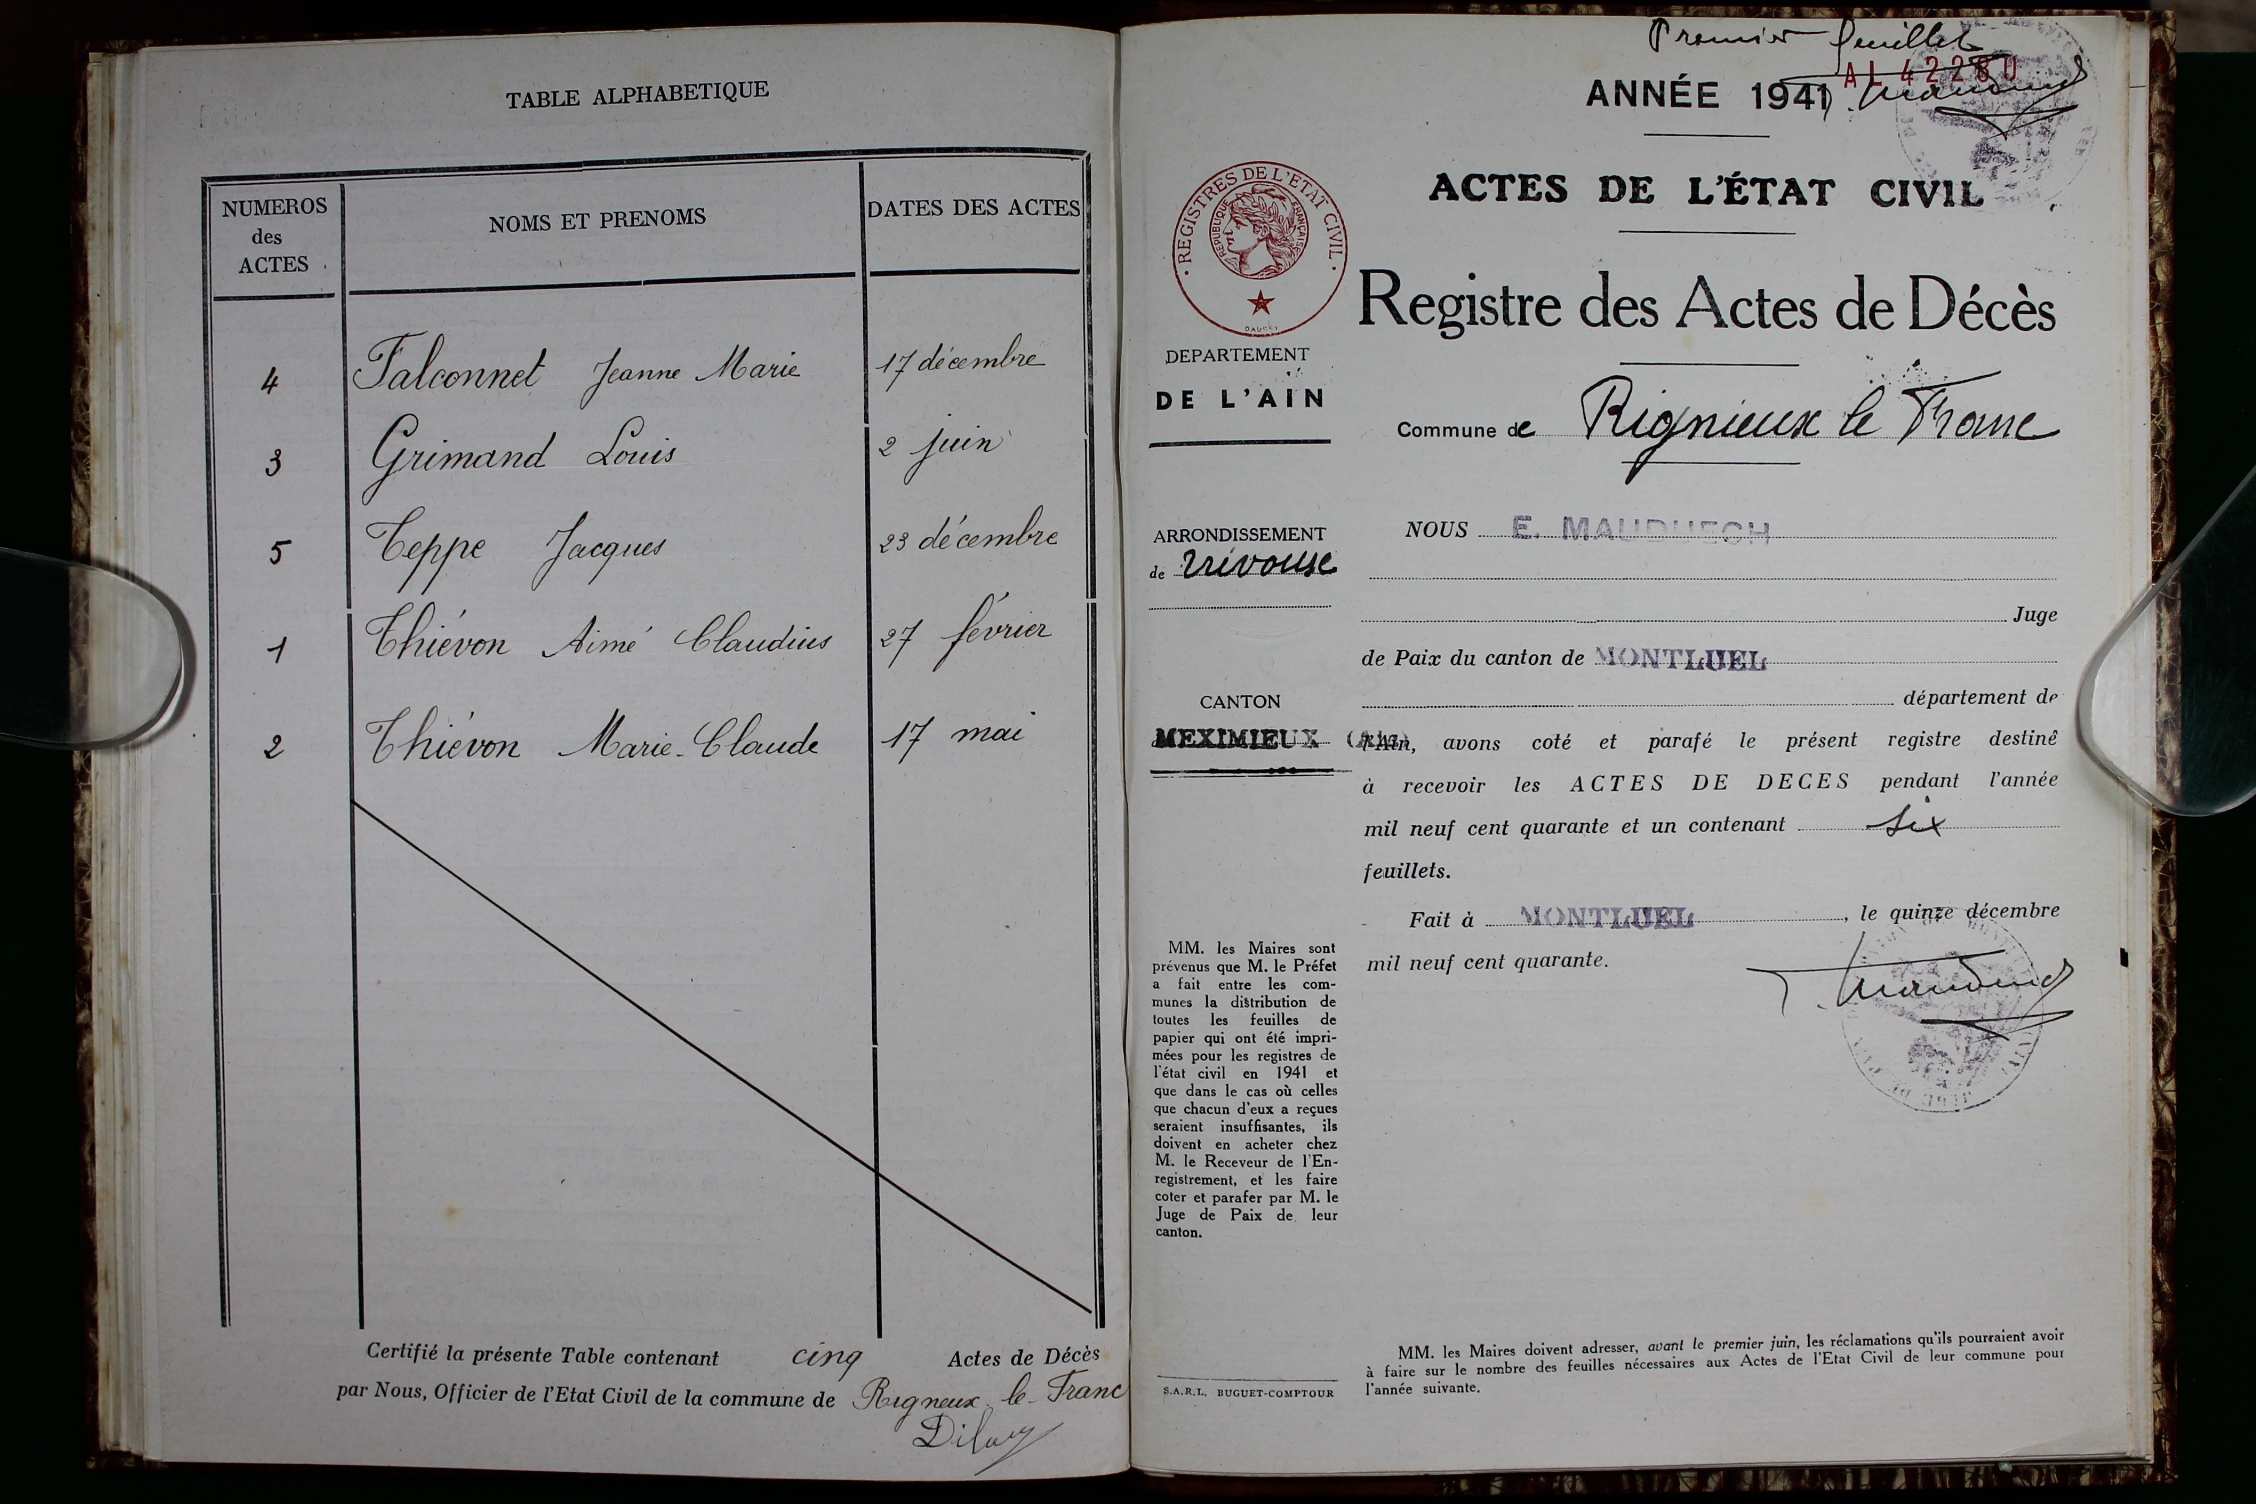 TABLE ALPHABETIQUE
NUMEROS
des
ACTES
NOMS ET PRENOMS
DATES DES ACTES
4 Falconnet Jeanne Marie 17 décembre
3 Grimand Louis 2 juin
5 Teppe Jacques 23 décembre
1 Thiévon Aimé Claudius 27 février
2 Thiévon Marie-Claude 17 mai
Certifié la présente Table contenant cinq Actes de Décès
par Nous, Officier de l'Etat Civil de la commune de Rigneux-le-Franc
Premier feuillet
ANNÉE 1941
ACTES DE L'ÉTAT CIVIL
REGISTRES DE L'ETAT CIVIL
REPUBLIQUE FRANÇAISE
Registre des Actes de Décès
DEPARTEMENT
DE L'AIN
Commune de Rignieux le Franc
ARRONDISSEMENT
de Trévoux
CANTON
MEXIMIEUX (Ain)
MM. les Maires sont
prévenus que M. le Préfet
a fait entre les com-
munes la distribution de
toutes les feuilles de
papier qui ont été impri-
mées pour les registres de
l'état civil en 1941 et
que dans le cas où celles
que chacun d'eux a reçues
seraient insuffisantes, ils
doivent en acheter chez
M. le Receveur de l'En-
registrement, et les faire
coter et parafer par M. le
Juge de Paix de leur
canton.
S.A.R.L. BUGUET-COMPTOUR
NOUS E. MAUDUECH
Juge
de Paix du canton de MONTLUEL
département de
l'Ain, avons coté et parafé le présent registre destiné
à recevoir les ACTES DE DECES pendant l'année
mil neuf cent quarante et un contenant six
feuillets.
Fait à MONTLUEL, le quinze décembre
mil neuf cent quarante.
MM. les Maires doivent adresser, avant le premier juin, les réclamations qu'ils pourraient avoir
à faire sur le nombre des feuilles nécessaires aux Actes de l'Etat Civil de leur commune pour
l'année suivante.